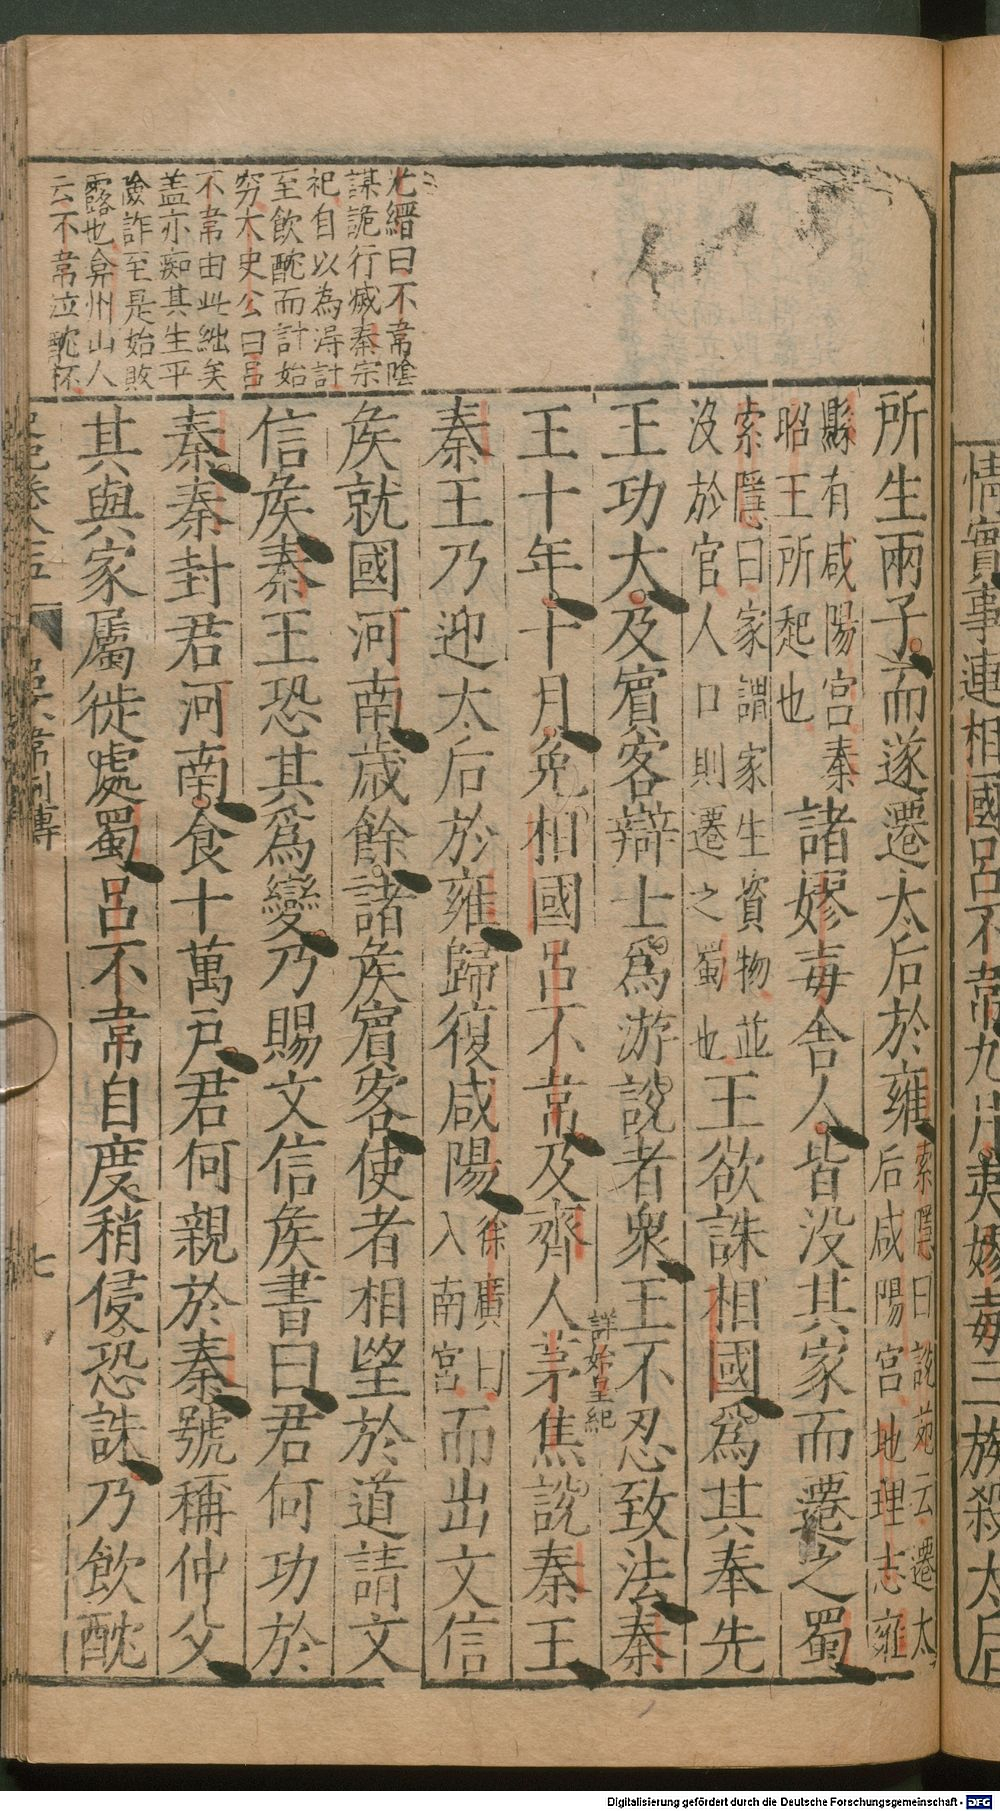 尤縉曰不韋陰
謀詭行滅秦宗
祀自以為得計
至飲酖而計始
窮太史公曰呂
不韋由此絀矣
蓋亦痴其生平
險詐至是始敗
露也弇州山人
云不韋泣酖杯
所生兩子而遂遷太后於雍索隱曰說苑云遷太后咸陽宮地理志雍
縣有咸陽宮秦昭王所起也諸嫪毐舍人皆没其家而遷之蜀
索隱曰家謂家生資物並没於官人口則遷之蜀也王欲誅相國爲其奉先
王功大及賓客辯士爲游說者衆王不忍致法秦
詳始皇紀
王十年十月免相國呂不韋及齊人茅焦說秦王
秦王乃迎太后於雍歸復咸陽徐廣曰入南宮而出文信
矦就國河南歲餘諸矦賓客使者相望於道請文
信矦秦王恐其爲變乃賜文信矦書曰君何功於
秦秦封君河南食十萬戶君何親於秦號稱仲父
其與家屬徙處蜀呂不韋自度稍侵恐誅乃飲酖
呂不韋列傳
七
情實事連相國呂不韋九月夷嫪毐三族殺太后
Digitalisierung gefördert durch die Deutsche Forschungsgemeinschaft - DFG